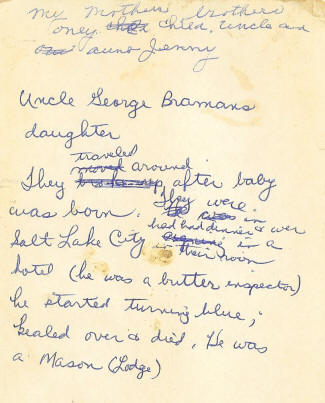 my mothers brothers
oney child, uncle and
aunt Jenny
Uncle George Bramans
daughter
traveled
They moved around
broke up, after baby
was born. They were
in
had had dinner & wer
Salt Lake City in their room in a
hotel (he was a butter inspector)
he started turning blue;
kealed over & died. He was
a Mason (Lodge)